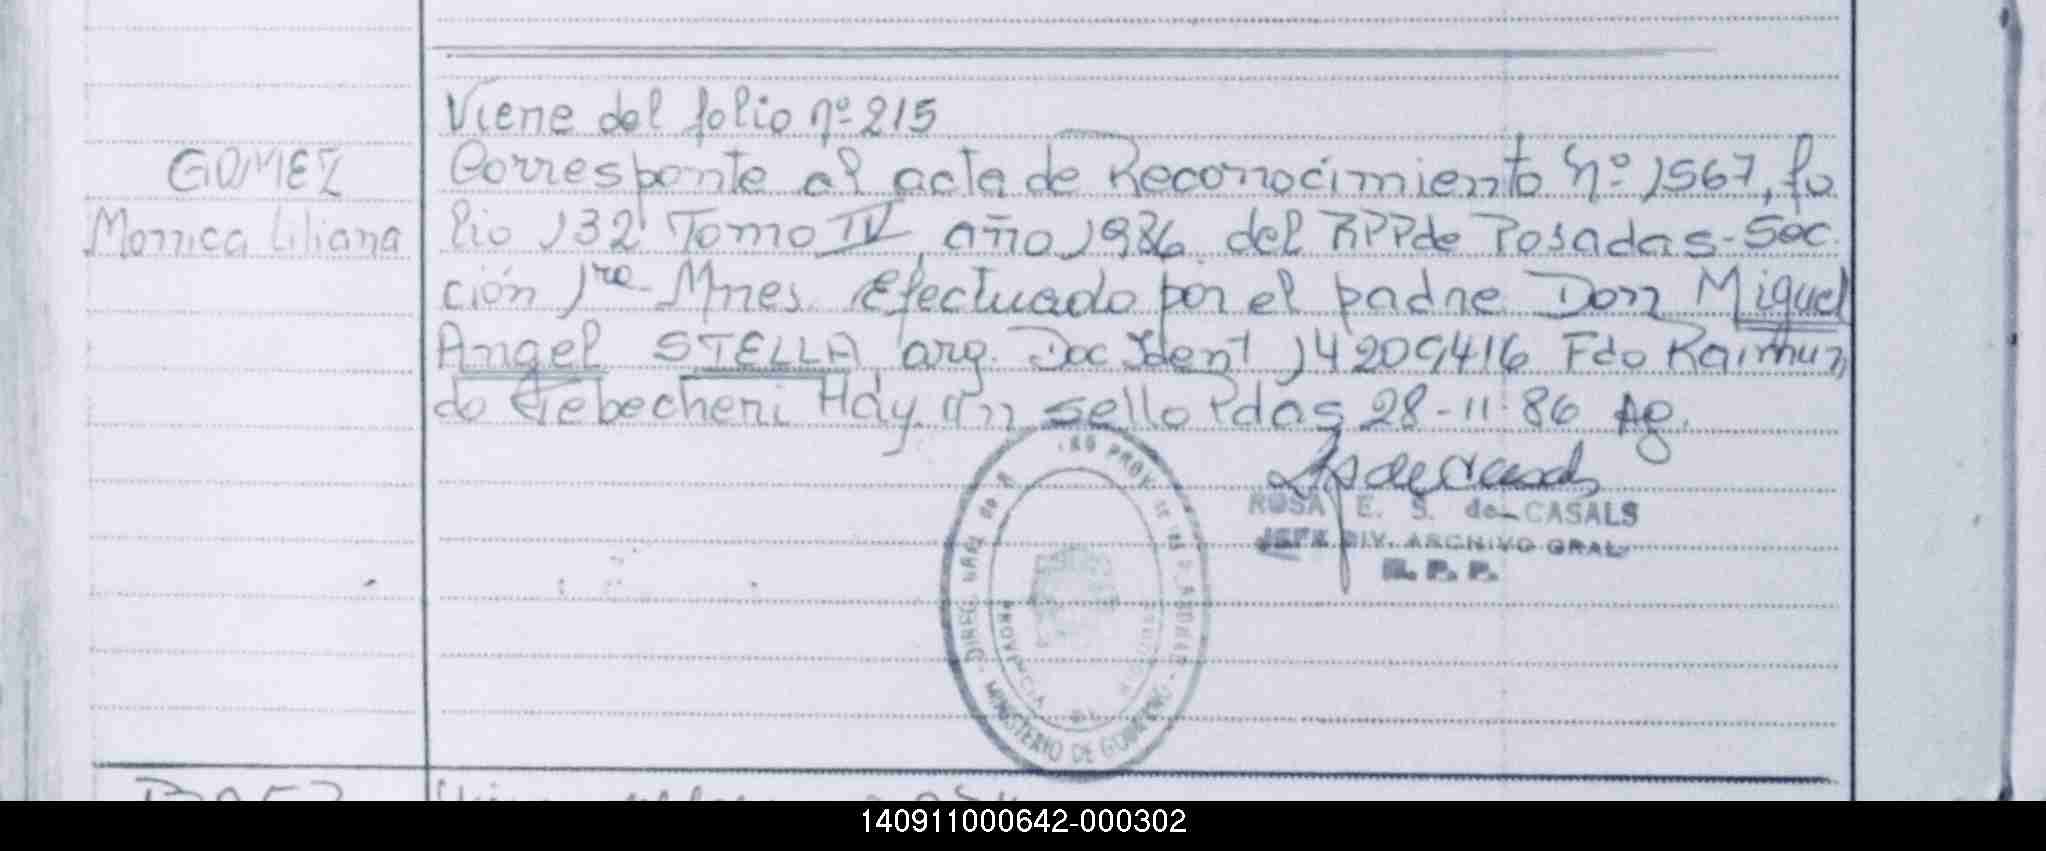 Viene del folio nº 215
GOMEZ
Monica Liliana
Corresponte al acta de Reconocimiento Nº 1567, fo
lio 132 Tomo IV, año 1986. del RPP de Posadas-Sec.
ción 1ra- Mnes. Efectuado por el padre Don Miguel
Angel STELLA arg. Doc Ident 14209416 Fdo Raimun
do Hay un sello Pdas 28-11-86 Ag.
ROSA E. S. de CASALS
JEFE DIV. ARCHIVO GRAL
R. P. P.
DIREC. GRAL DE
MINISTERIO DE GOBIERNO
PROVINCIA
140911000642-000302